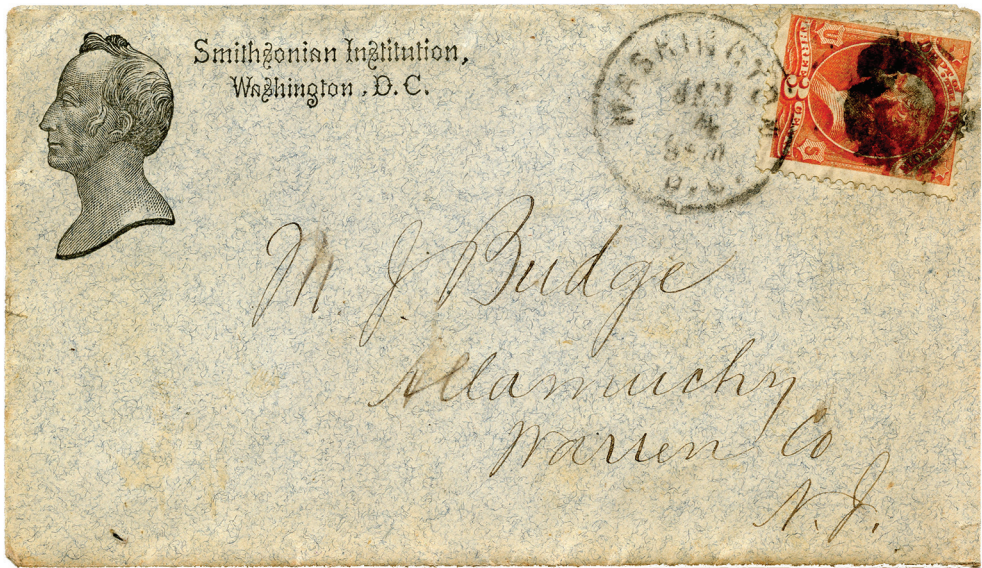 Smithsonian Institution,
Washington, D.C.
WASHINGTON
D.C.
THREE 3 CENTS
M. J. Budge
Allamuchy
Warren Co
N. J.